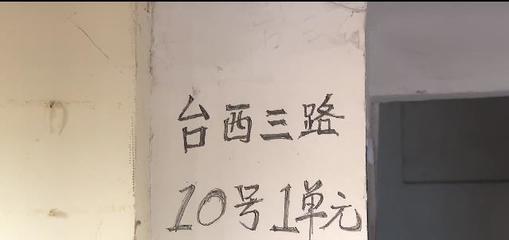 台西三路
10号1单元